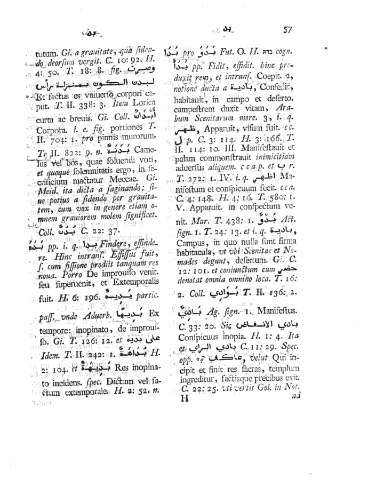 57
tutum. Gi. a gravitate, quâ siden-
do deorsum vergit. C. 10: 92. H.
4: 50. T. 18: 8. fig.
K: factus es vivuerto corpori ca-
put. T. H. 338: 3. Item Lorica
curta ac brevis. Gl. Coll.
Corpora. I. e. fig. portiones T.
H. 704: 1. pro pinnis murorum.
Te H. 822: 9. n. بدنة Came-
lus vel bos, quæ soluendi voti,
et quoque solemnitatis ergo, in sa-
crificium mactatur Meccæ. Gi.
Meid. ita dicta a saginando: si-
ne potius a sidendo per gravita-
tem, cum vox in genere etiam o-
mnem graviorem molem significet.
Coll. بدن C. 22: 37.
pp. i. q. Findere, effinde-
re. Hinc intrans. Effissus fuit,
f. cum fissione prodiit tanquam res
nova. Porro De improviso venit,
seu supervenit, et Extemporalis
fuit. H: 6: 196. بديهة partic.
pass. unde Adverb. بديها Ex
tempore; inopinato, de improvi-
so. Gi. T. 126: 12. et على بديه
Idem. T. H. 242: 1. بداهة H.
2: 104. et بديهة Res inopina-
to incidens. spec. Dictum vel fa-
ctum extemporale. H: 2: 52. n.
بدا pro بدو Fut. O. H. cogn.
pp. Fidit, effidit. hinc pro-
duxit rem, et intrans. Coepit. 2,
notione ducta a بادية, Consedit,
habitavit, in campo et deserto.
campestrem duxit viam, Ara-
bum Scenitarum more. 3, i. q.
ظهر, Apparuit, visum fuit. cc.
ل p. C. 3: 114. H: 3: 166. T.
H. 114: 10. III. Manifestavit et
palam commonstravit inimicitiam
adversus aliquem. c c a p. et ب r.
T. 272: 1. IV. i. q. اظهر Ma-
nifestum et conspicuum fecit. cca.
C. 4: 148. H: 4: 16. T. 580: 1.
V. Apparuit. in conspectum ve-
nit. Mar. T. 438: 1. بدو Act.
sign. 1. T. 24: 13. et i. q. بادية,
Campus, in quo nulla sunt firma
habitacula, ut ubi Scenitæ et No-
mades degunt, desertum. Gi. C.
12: 101. et coniunctum cum حضر
denotat omnia omnino loca. T. 16:
2. Coll. بوادي T. H. 136: 2.
بادي Ag. sign. 1. Manifestus.
C. 33: 20. Sic بادي الانفاض
Conspicuus inopia. H. 1: 4. Ita
et بادي الراي C. 11: 29. Spec.
opp. τῷ عاكف, velut Qui in-
cipit et finit res sacras, templum
ingreditur, factisque precibus exit.
C. 22: 25. uti vertit Gol. in Not.
H ad